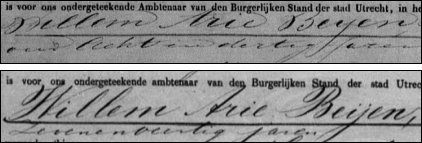 is voor ons ondergeteekende Ambtenaar van den Burgerlijken Stand der stad Utrecht, in he
Willem Arie Beijen,
oud Achtendertig jaren
is voor ons ondergeteekende ambtenaar van den Burgerlijken Stand der stad Utrec
Willem Arie Beijen,
zevenenveertig jaren